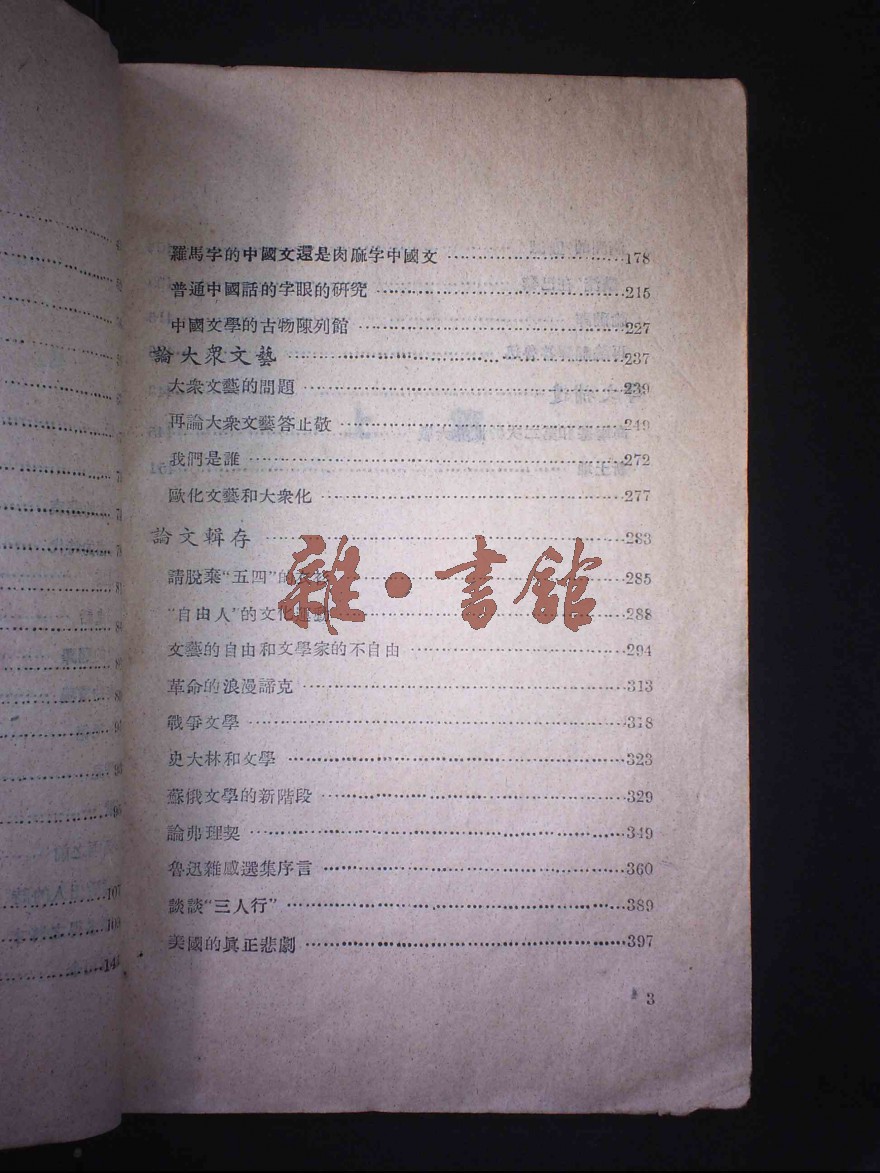 羅馬字的中國文還是肉麻字中國文 ……178
普通中國話的字眼的研究 ……215
中國文學的古物陳列館 ……227
論大衆文藝 ……237
大衆文藝的問題 ……239
再論大衆文藝答止敬 ……249
我們是誰 ……272
歐化文藝和大衆化 ……277
論文輯存 ……283
請脫棄“五四”的衣衫 ……285
“自由人”的文化運動 ……288
文藝的自由和文學家的不自由 ……294
革命的浪漫諦克 ……313
戰爭文學 ……318
史大林和文學 ……323
蘇俄文學的新階段 ……329
論弗理契 ……349
魯迅雜感選集序言 ……360
談談“三人行” ……389
美國的眞正悲劇 ……397
3
雜·書館